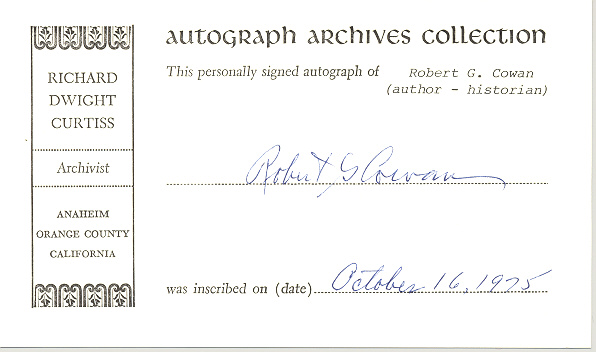 AUTOGRAPH ARCHIVES COLLECTION
RICHARD
DWIGHT
CURTISS
Archivist
ANAHEIM
ORANGE COUNTY
CALIFORNIA
This personally signed autograph of Robert G. Cowan
(author - historian)
Robert G Cowan
was inscribed on (date) October 16, 1975